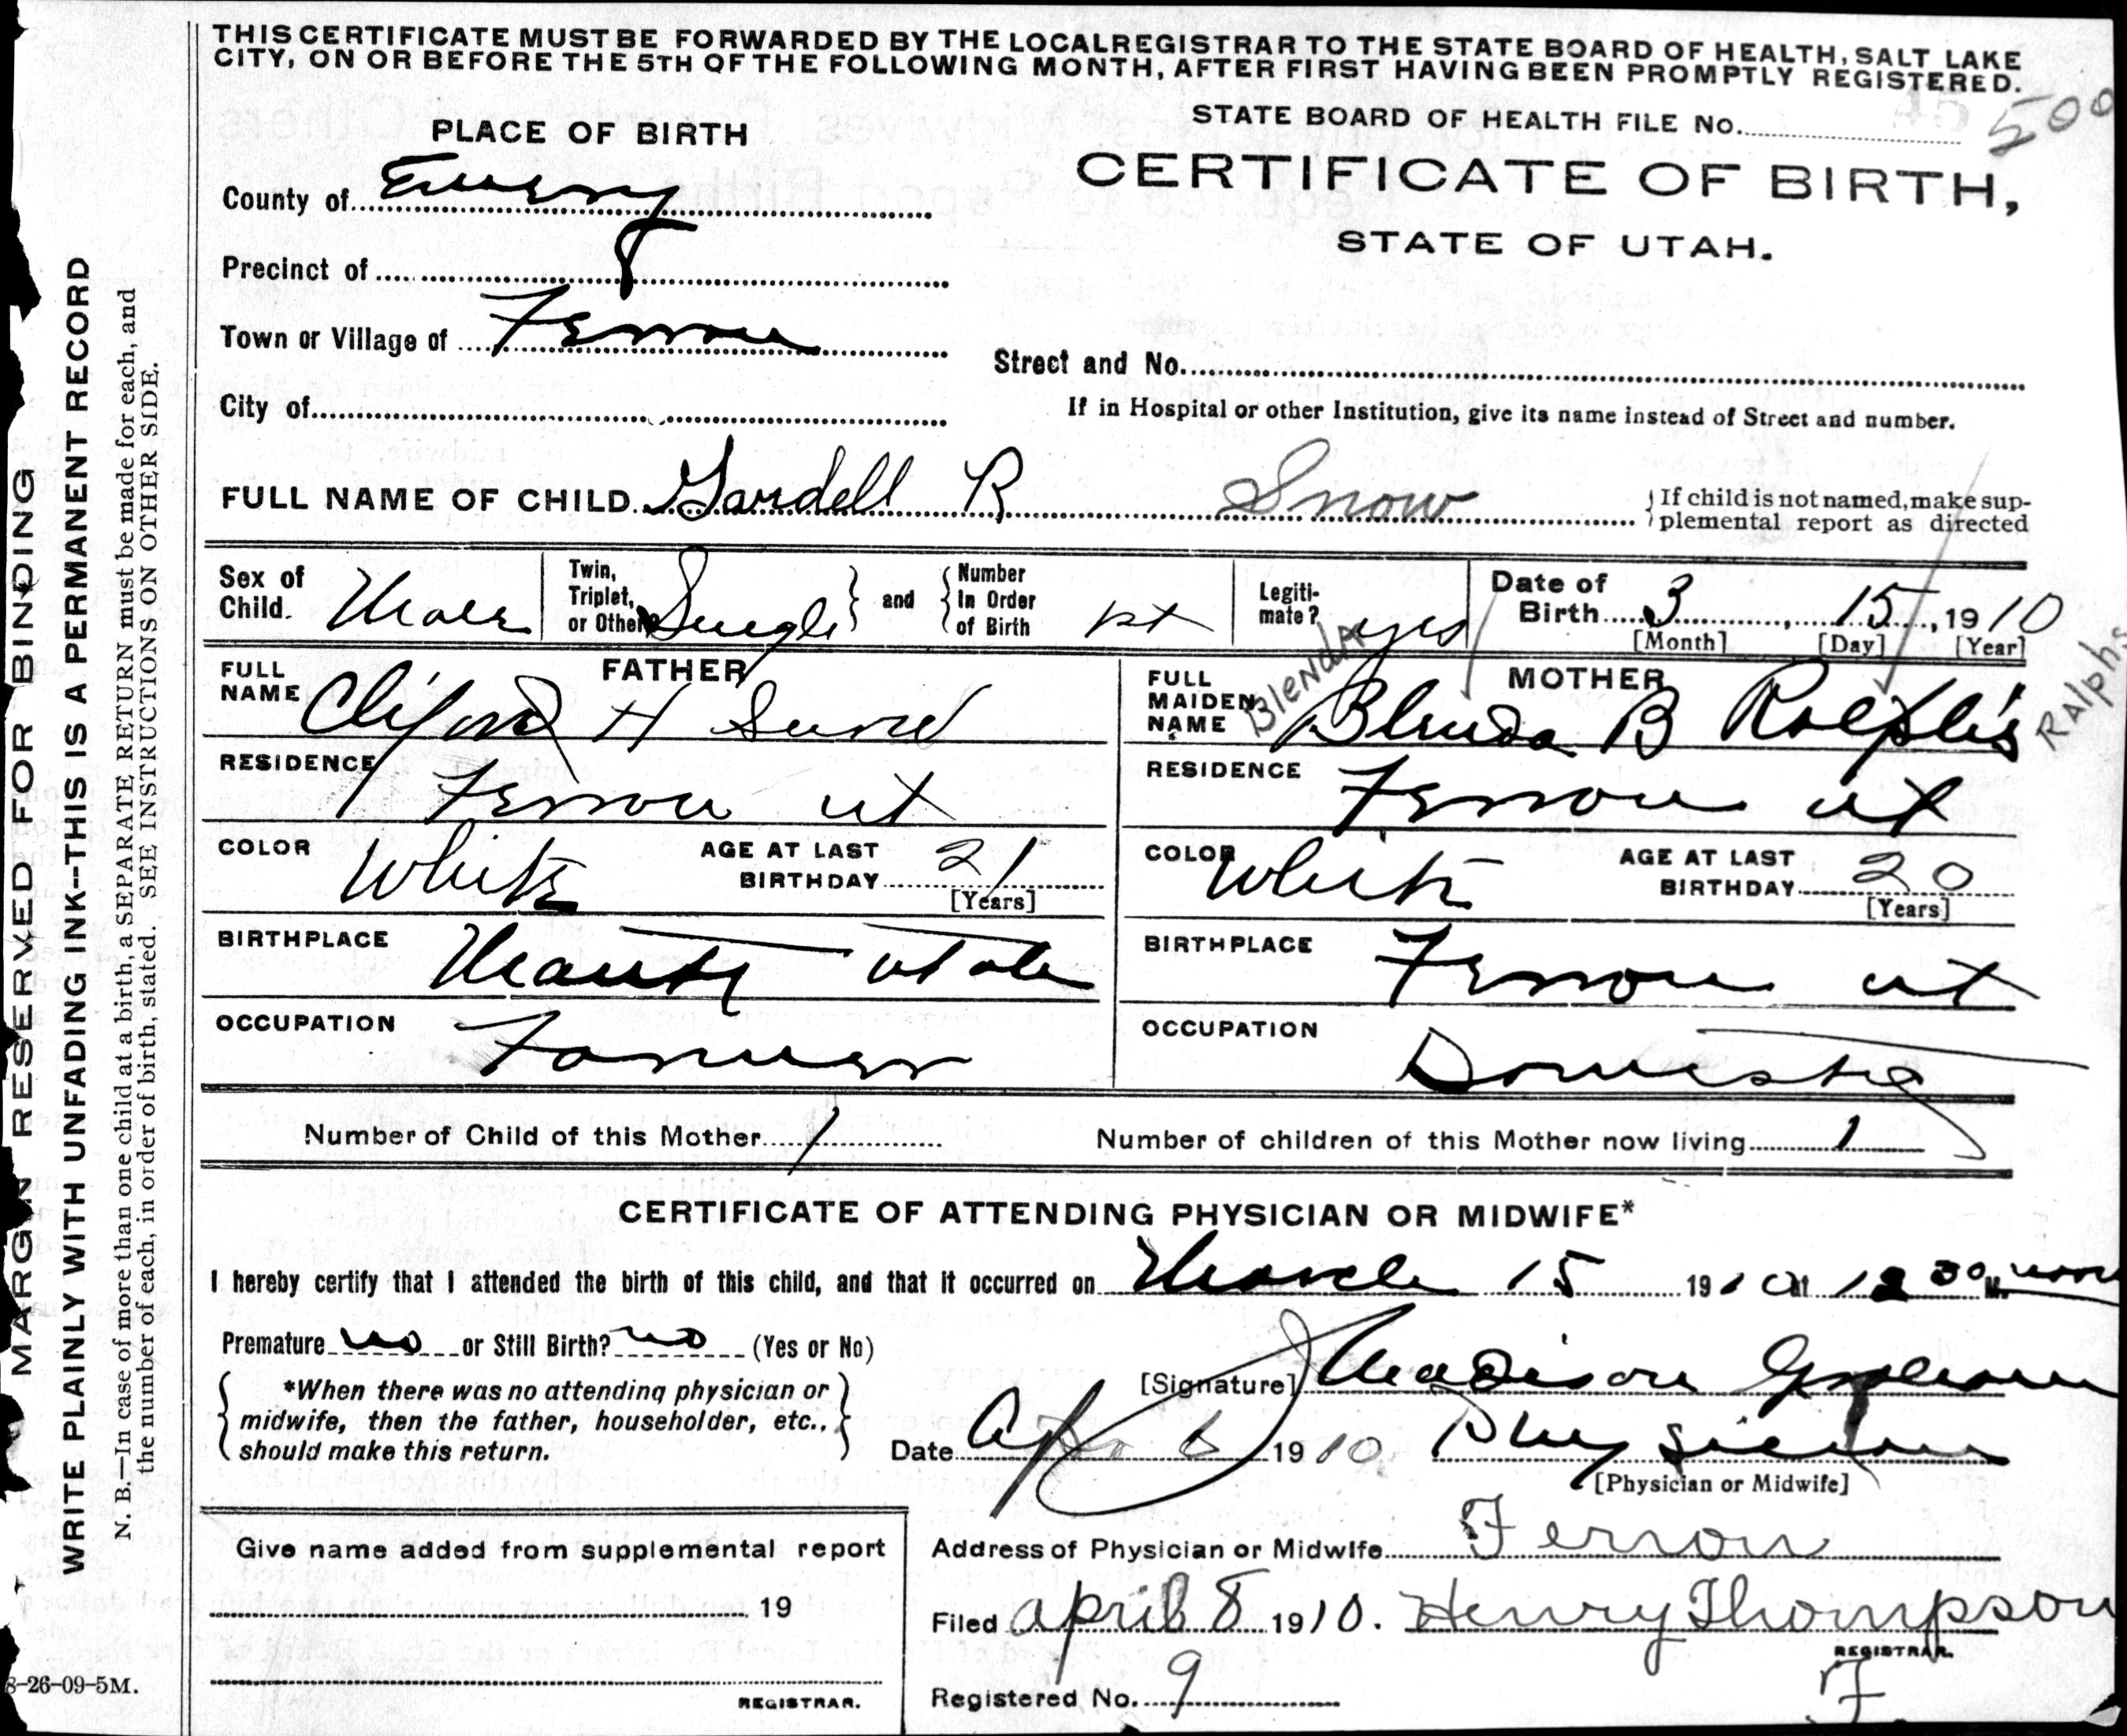 THIS CERTIFICATE MUST BE FORWARDED BY THE LOCAL REGISTRAR TO THE STATE BOARD OF HEALTH, SALT LAKE
CITY, ON OR BEFORE THE 5TH OF THE FOLLOWING MONTH, AFTER FIRST HAVING BEEN PROMPTLY REGISTERED.
STATE BOARD OF HEALTH FILE No. 500
PLACE OF BIRTH
CERTIFICATE OF BIRTH,
STATE OF UTAH.
County of Emery
Precinct of
Town or Village of Ferron
Street and No.
City of
If in Hospital or other Institution, give its name instead of Street and number.
FULL NAME OF CHILD Gardell R Snow
If child is not named, make sup-
plemental report as directed
Sex of Child. Male
Twin, Triplet, or Other? Single
and
Number In Order of Birth 1st
Legiti-
mate? yes
Date of Birth 3 15, 1910
[Month] [Day] [Year]
FATHER
FULL NAME Cliford H Snow
MOTHER
FULL MAIDEN NAME Blenda B Ralphs
Blenda
Ralphs
RESIDENCE Ferron ut
RESIDENCE Ferron ut
COLOR White
AGE AT LAST BIRTHDAY 21
[Years]
COLOR White
AGE AT LAST BIRTHDAY 20
[Years]
BIRTHPLACE Manti Utah
BIRTHPLACE Ferron ut
OCCUPATION Farmer
OCCUPATION Domestic
Number of Child of this Mother 1
Number of children of this Mother now living 1
CERTIFICATE OF ATTENDING PHYSICIAN OR MIDWIFE*
I hereby certify that I attended the birth of this child, and that it occurred on March 15 1910 at 12 30 M. noon
Premature no or Still Birth? no (Yes or No)
*When there was no attending physician or
midwife, then the father, householder, etc.,
should make this return.
[Signature] Madison
Date Apr 6 1910. Physician
[Physician or Midwife]
Give name added from supplemental report
19
REGISTRAR.
Address of Physician or Midwife Ferron
Filed april 8 1910. Henry Thompson
REGISTRAR.
F
Registered No. 9
MARGIN RESERVED FOR BINDING
WRITE PLAINLY WITH UNFADING INK--THIS IS A PERMANENT RECORD
N. B.—In case of more than one child at a birth, a SEPARATE RETURN must be made for each, and
the number of each, in order of birth, stated. SEE INSTRUCTIONS ON OTHER SIDE.
8-26-09-5M.